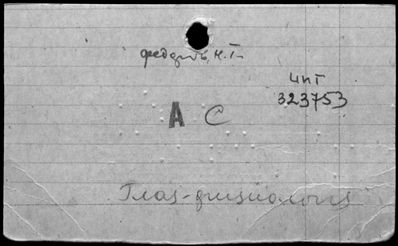 Федоров Н.Т.
ЦПТ
323753
А С
Глаз - физиология